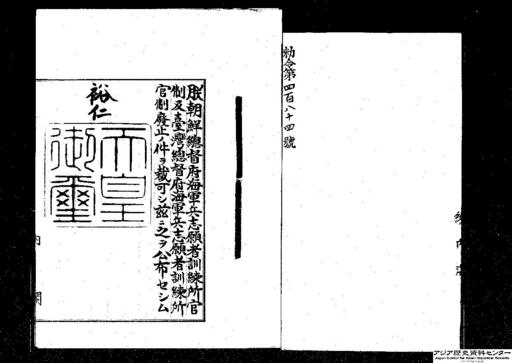 勅令第四百八十四號
朕朝鮮總督府海軍兵志願者訓練所官
制及臺灣總督府海軍兵志願者訓練所
官制廢止ノ件ヲ裁可シ茲ニ之ヲ公布セシム
裕仁
天皇
御璽
内閣
アジア歴史資料センター
Japan Center for Asian Historical Records